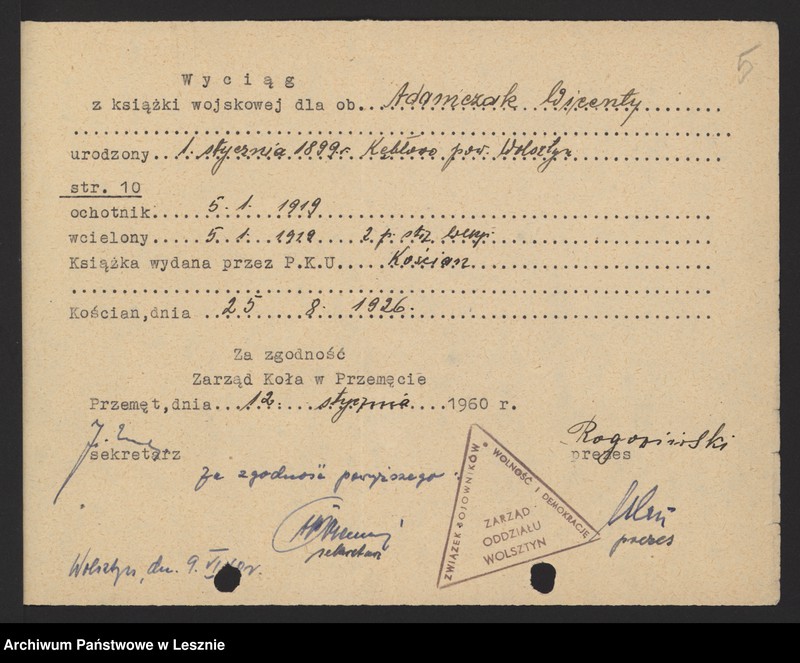 5
Wyciąg
z książki wojskowej dla ob... Adamczak Wicenty
urodzony.. 1. stycznia 1899 r. Kębłowo pow. Wolsztyn
str. 10
ochotnik..... 5. 1. 1919
wcielony..... 5. 1. 1919 2. p. strz. wlkp.
Książka wydana przez P.K.U.... Kościan
Kościan,dnia .. 25 8. 1926.
Za zgodność
Zarząd Koła w Przemęcie
Przemęt,dnia... 12. stycznia ....1960 r.
Rogoziński
sekretarz prezes
za zgodność powyższego:
ZWIĄZEK BOJOWNIKÓW O WOLNOŚĆ I DEMOKRACJĘ
ZARZĄD
ODDZIAŁU
WOLSZTYN
sekretarz
prezes
Wolsztyn, dn. 9. VI
Archiwum Państwowe w Lesznie